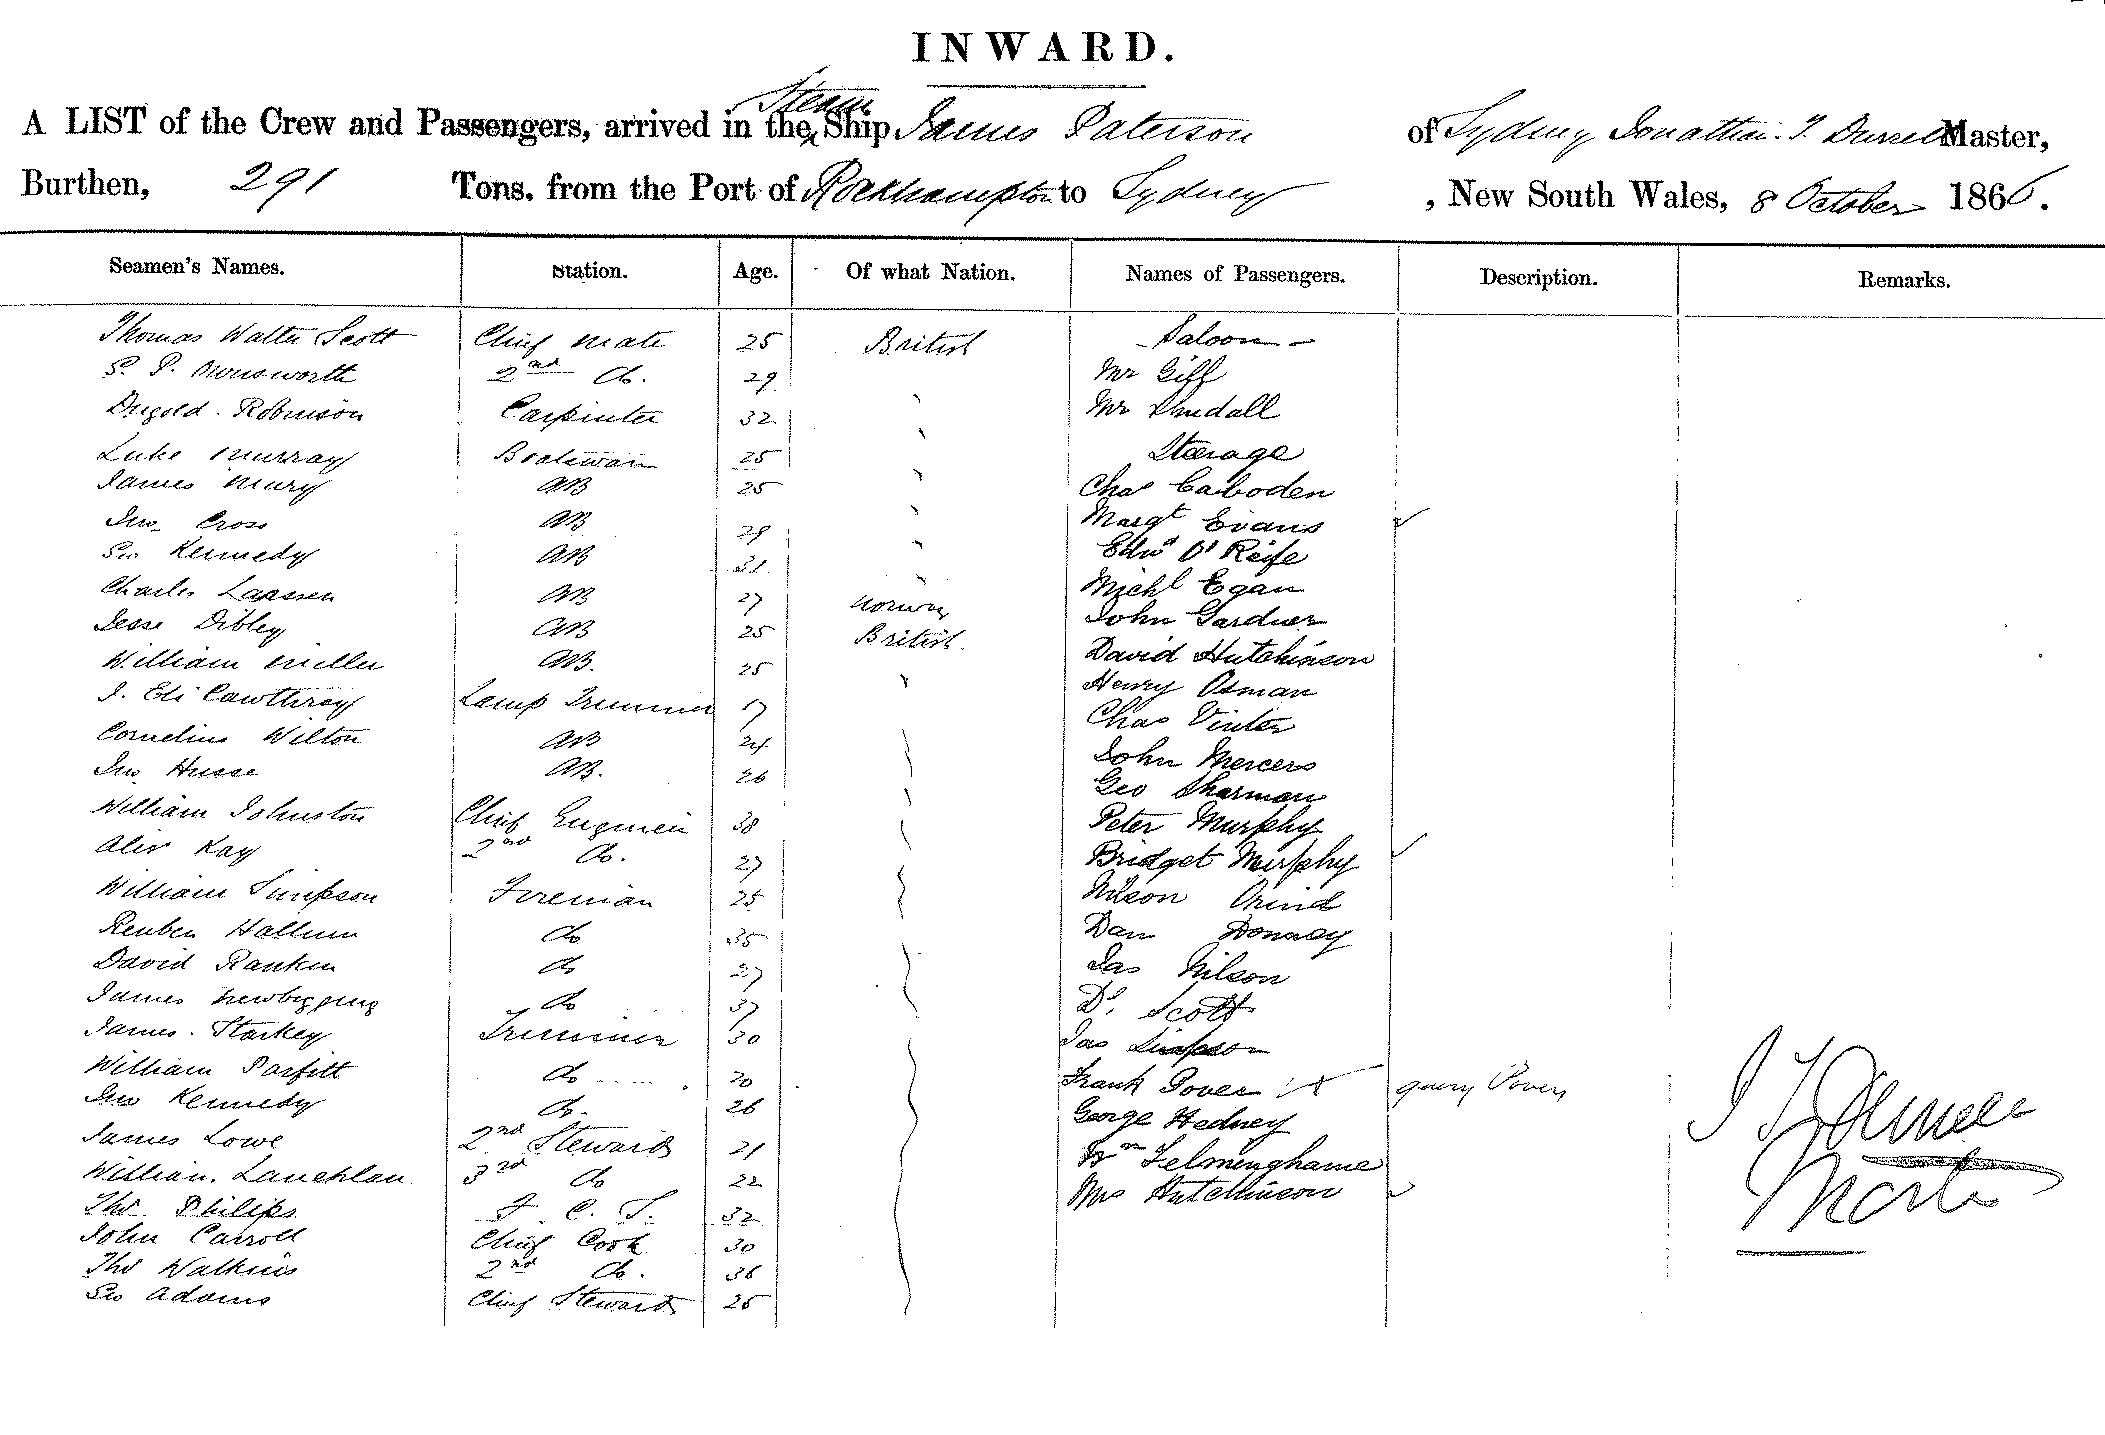 INWARD.
Steam
A LIST of the Crew and Passengers, arrived in the Ship James Paterson of Sydney Jonathan. T. Durrell Master,
Burthen, 291 Tons. from the Port of Rockhampton to Sydney , New South Wales, 8 October 1866.
Seamen's Names. Station. Age. Of what Nation. Names of Passengers. Description. Remarks.
Thomas Walter Scott Chief Mate 25 British Saloon
2nd Do. 29 Mr Giff
Dugold. Robinson Carpenter 32 Mr Randall
Luke Murray Boatswain 25 Steerage
James Mury AB 25 Chas Caboden
Jno Cross AB 29 Margt Evans
Geo Kennedy AB 31 Edwd O'Reife
Charles Laassen AB 27 Norway Michl Egan
Jesse Dibley AB 25 British John Gardner
William Miller AB. 25 David Hutchinson
J. Eli Cawthray Lamp Trimmer 17 Henry Osman
Cornelius Wilton AB 24 Chas Vinter
Jno Husse AB. 26 John Mercers
Geo Sharman
William Johnston Chief Engineer 38 Peter Murphy
Alex Kay 2nd Do. 27 Bridget Murphy
William Simpson Fireman 25 Nilson
Reuben Hallum do 35 Dan
David Rankin do 27 Jas Nilson
James Newbigging do 37 Dd. Scott
James. Starkey Trimmer 30 Jas Simpson
William Parfitt do 20 Frank Pover X query Povery
Jno Kennedy do. 26 George Hedney
James Lowe 2nd Steward 21 Wm Felminghame
William. Lauchlan 3rd do 22 Mrs Hutchinson
Tho Philips F. C. S. 32
John Carroll Chief Cook 30
Tho Watkins 2nd do. 36
Geo Adams Chief Steward 25
J T Durrell
Master